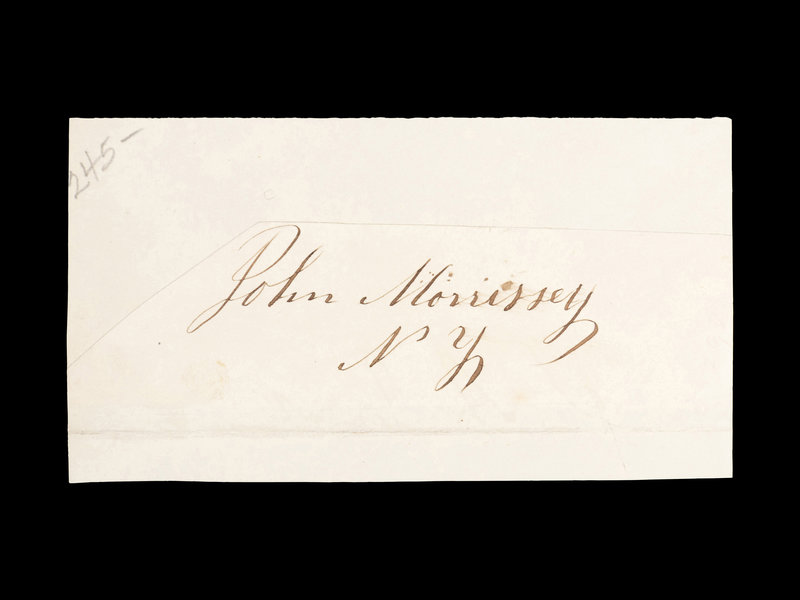 245-
John Morrissey
N Y